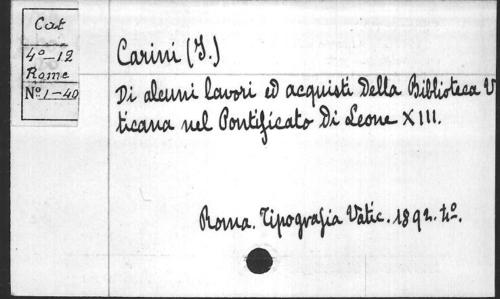 Cat
4º-12
Rome
Nº1-40
Carini (I.)
Di alcuni lavori ed acquisti della Biblioteca V
ticana nel Pontificato di Leone XIII.
Roma. Tipografia Vatic. 1892. 4º.